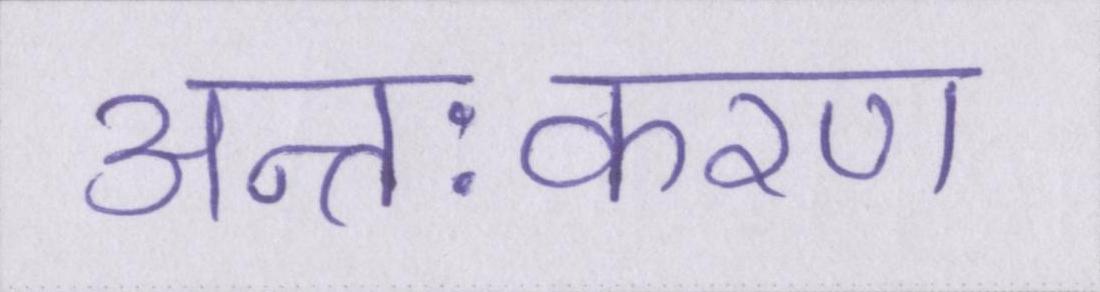 अन्तःकरण